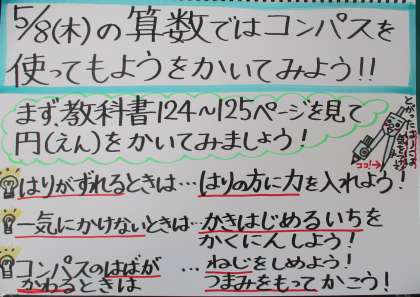 5/8(木)の算数ではコンパスを
使ってもようをかいてみよう!!
まず教科書124~125ページを見て
円(えん)をかいてみましょう!
ココ!→
はりがずれるときは…はりの方に力を入れよう!
一気にかけないときは…かきはじめるいちを
かくにんしよう!
コンパスのはばが
かわるときは
…ねじをしめよう!
つまみをもってかこう!